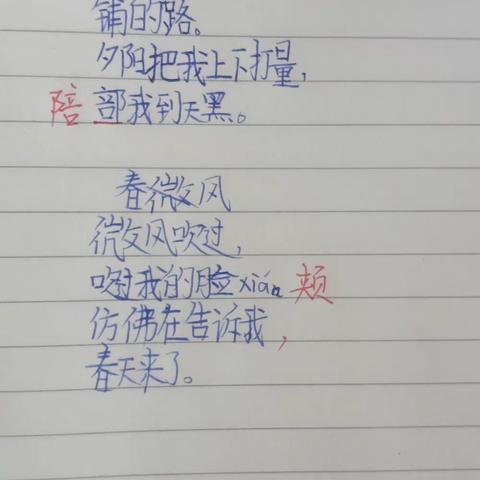 铺的路。
夕阳把我上下打量,
陪部我到天黑。
春微风
微风吹过,
我的脸xiá颊
仿佛在告诉我,
春天来了。